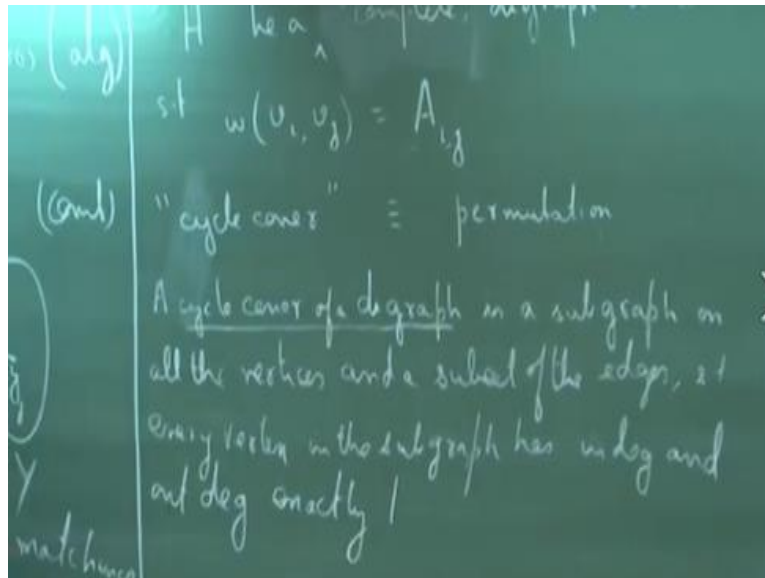 (alg)
H be a ^ complete, digraph
s.t w(v_i, v_j) = A_{i,j}
(comb) "cycle cover" ≡ permutation
A cycle cover of a digraph is a subgraph on
all the vertices and a subset of the edges, s.t
every vertex in the subgraph has indeg and
Y out deg exactly 1
matchings